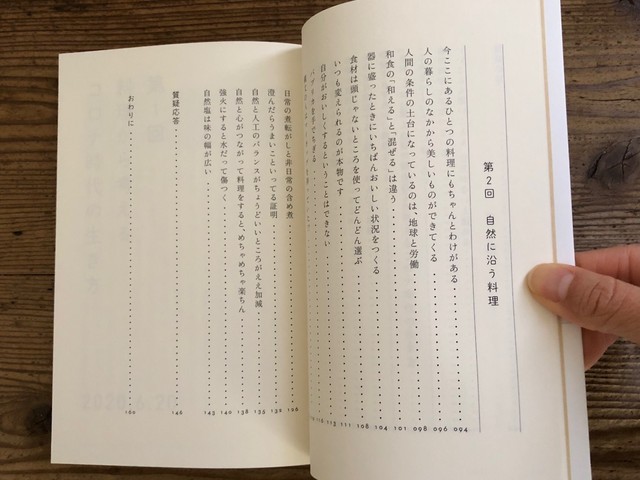 第2回 自然に沿う料理
今ここにあるひとつの料理にもちゃんとわけがある 094
人の暮らしのなかから美しいものができてくる 096
人間の条件の土台になっているのは、地球と労働 098
和食の「和える」と「混ぜる」は違う 101
器に盛ったときにいちばんおいしい状況をつくる 104
食材は頭じゃないところを使ってどんどん選ぶ 108
いつも変えられるのが本物です 111
自分がおいしくするということはできない 113
パプリカを手でちぎる
日常の煮転がしと非日常の含め煮 126
澄んだらうまいこといってる証明 129
自然と人工のバランスがちょうどいいところがええ加減 135
自然と心がつながって料理をすると、めちゃめちゃ楽ちん 138
強火にすると水だって傷つく 140
自然塩は味の幅が広い 143
質疑応答 146
おわりに 160